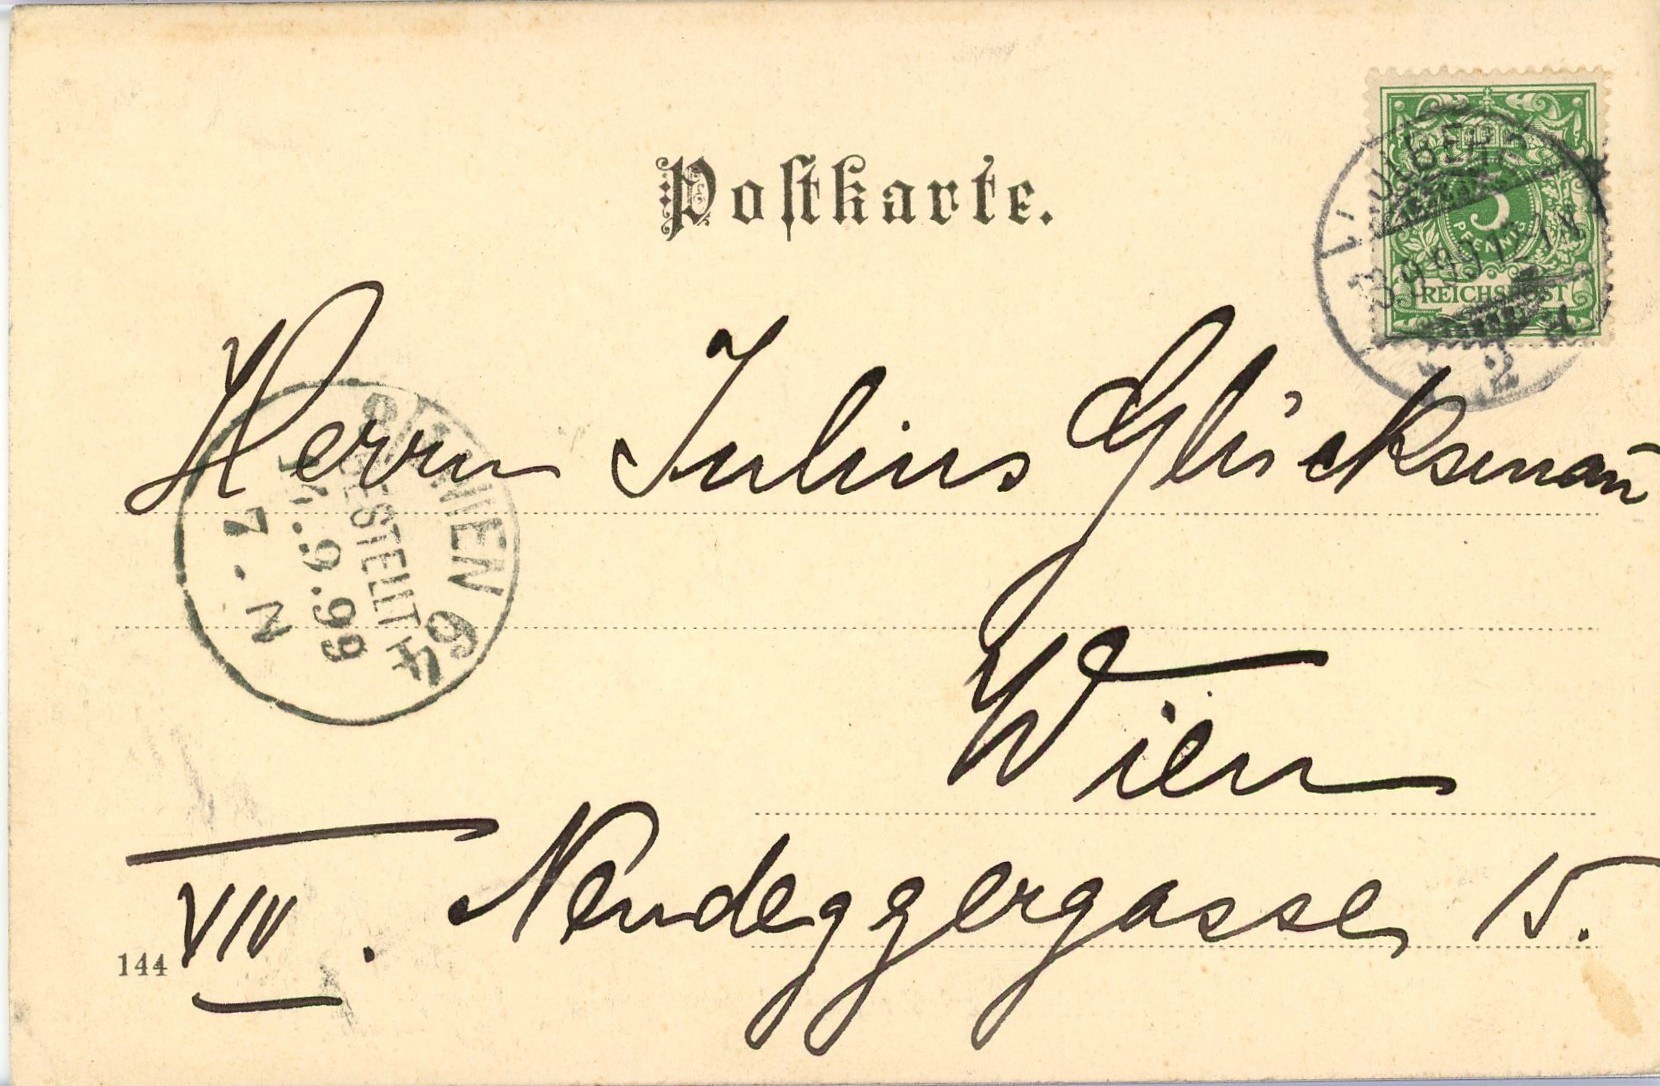 Postkarte.
5
PFENNIG
REICHSPOST
2
Herrn Julius Glücksmañ
WIEN 9
64
BESTELLT
7.9.99
7-N
Wien
VIII. Neudeggergasse 15.
144